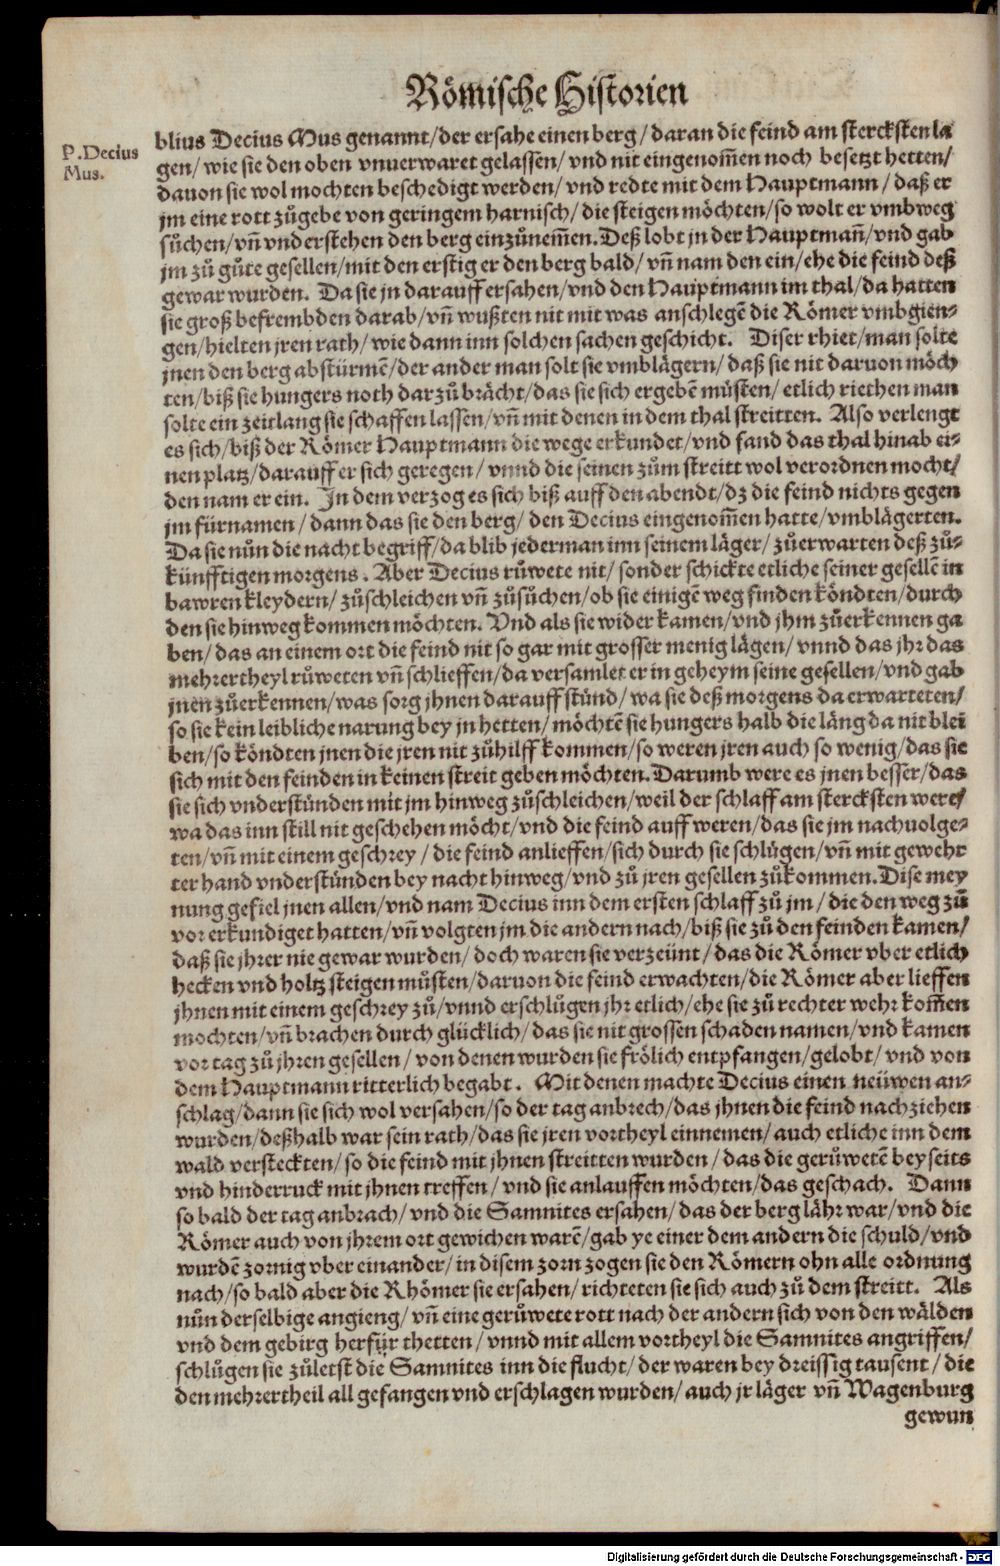 Römische Historien
P. Decius
Mus.
blius Decius Mus genannt/der ersahe einen berg/daran die feind am stercksten la
gen/wie sie den oben vnuerwaret gelassen/vnd nit eingenom̃en noch besetzt hetten/
dauon sie wol mochten beschedigt werden/vnd redte mit dem Hauptmann/daß er
jm eine rott zůgebe von geringem harnisch/die steigen möchten/so wolt er vmbweg
sůchen/vñ vnderstehen den berg einzůnem̃en. Deß lobt jn der Hauptmañ/vnd gab
jm zů gůte gesellen/mit den erstig er den berg bald/vñ nam den ein/ehe die feind deß
gewar wurden. Da sie jn darauff ersahen/vnd den Hauptmann im thal/da hatten
sie groß befrembden darab/vñ wußten nit mit was anschlegẽ die Römer vmbgien-
gen/hielten jren rath/wie dann inn solchen sachen geschicht. Diser rhiet/man solte
jnen den berg abstürmẽ/der ander man solt sie vmblägern/daß sie nit daruon möch
ten/biß sie hungers noth darzů brächt/das sie sich ergebẽ můsten/etlich riethen man
solte ein zeitlang sie schaffen lassen/vñ mit denen in dem thal streitten. Also verlengt
es sich/biß der Römer Hauptmann die wege erkundet/vnd fand das thal hinab ei-
nen platz/darauff er sich geregen/vnnd die seinen zům streitt wol verordnen mocht/
den nam er ein. In dem verzog es sich biß auff den abendt/dz die feind nichts gegen
jm fürnamen/dann das sie den berg/den Decius eingenom̃en hatte/vmblägerten.
Da sie nůn die nacht begriff/da blib jederman inn seinem läger/zůerwarten deß zů-
künfftigen morgens. Aber Decius růwete nit/sonder schickte etliche seiner gesellẽ in
bawren kleydern/zůschleichen vñ zůsůchen/ob sie einigẽ weg finden köndten/durch
den sie hinweg kommen möchten. Vnd als sie wider kamen/vnd jhm zůerkennen ga
ben/das an einem ort die feind nit so gar mit grosser menig lägen/vnnd das jhr das
mehrertheyl růweten vñ schlieffen/da versamlet er in geheym seine gesellen/vnd gab
jnen zůerkennen/was sorg jhnen darauff stůnd/wa sie deß morgens da erwarteten/
so sie kein leibliche narung bey jn hetten/möchtẽ sie hungers halb die läng da nit blei
ben/so köndten jnen die jren nit zůhilff kommen/so weren jren auch so wenig/das sie
sich mit den feinden in keinen streit geben möchten. Darumb were es jnen besser/das
sie sich vnderstůnden mit jm hinweg zůschleichen/weil der schlaff am stercksten were/
wa das inn still nit geschehen möcht/vnd die feind auff weren/das sie jm nachuolge-
ten/vñ mit einem geschrey/die feind anlieffen/sich durch sie schlůgen/vñ mit gewehr
ter hand vnderstůnden bey nacht hinweg/vnd zů jren gesellen zůkommen. Dise mey
nung gefiel jnen allen/vnd nam Decius inn dem ersten schlaff zů jm/die den weg zů
vor erkundiget hatten/vñ volgten jm die andern nach/biß sie zů den feinden kamen/
daß sie jhrer nie gewar wurden/doch waren sie verzeünt/das die Römer vber etlich
hecken vnd holtz steigen můsten/daruon die feind erwachten/die Römer aber lieffen
jhnen mit einem geschrey zů/vnnd erschlůgen jhr etlich/ehe sie zů rechter wehr kom̃en
mochten/vñ brachen durch glücklich/das sie nit grossen schaden namen/vnd kamen
vor tag zů jhren gesellen/von denen wurden sie frölich entpfangen/gelobt/vnd von
dem Hauptmann ritterlich begabt. Mit denen machte Decius einen neüwen an-
schlag/dann sie sich wol versahen/so der tag anbrech/das jhnen die feind nachziehen
wurden/deßhalb war sein rath/das sie jren vortheyl einnemen/auch etliche inn dem
wald versteckten/so die feind mit jhnen streitten wurden/das die gerůwetẽ beyseits
vnd hinderruck mit jhnen treffen/vnd sie anlauffen möchten/das geschach. Dann
so bald der tag anbrach/vnd die Samnites ersahen/das der berg lähr war/vnd die
Römer auch von jhrem ort gewichen warẽ/gab ye einer dem andern die schuld/vnd
wurdẽ zornig vber einander/in disem zorn zogen sie den Römern ohn alle ordnung
nach/so bald aber die Rhömer sie ersahen/richteten sie sich auch zů dem streitt. Als
nůn derselbige angieng/vñ eine gerůwete rott nach der andern sich von den wälden
vnd dem gebirg herfür thetten/vnnd mit allem vortheyl die Samnites angriffen/
schlůgen sie zůletst die Samnites inn die flucht/der waren bey dreissig tausent/die
den mehrertheil all gefangen vnd erschlagen wurden/auch jr läger vñ Wagenburg
gewun
Digitalisierung gefördert durch die Deutsche Forschungsgemeinschaft - DFG